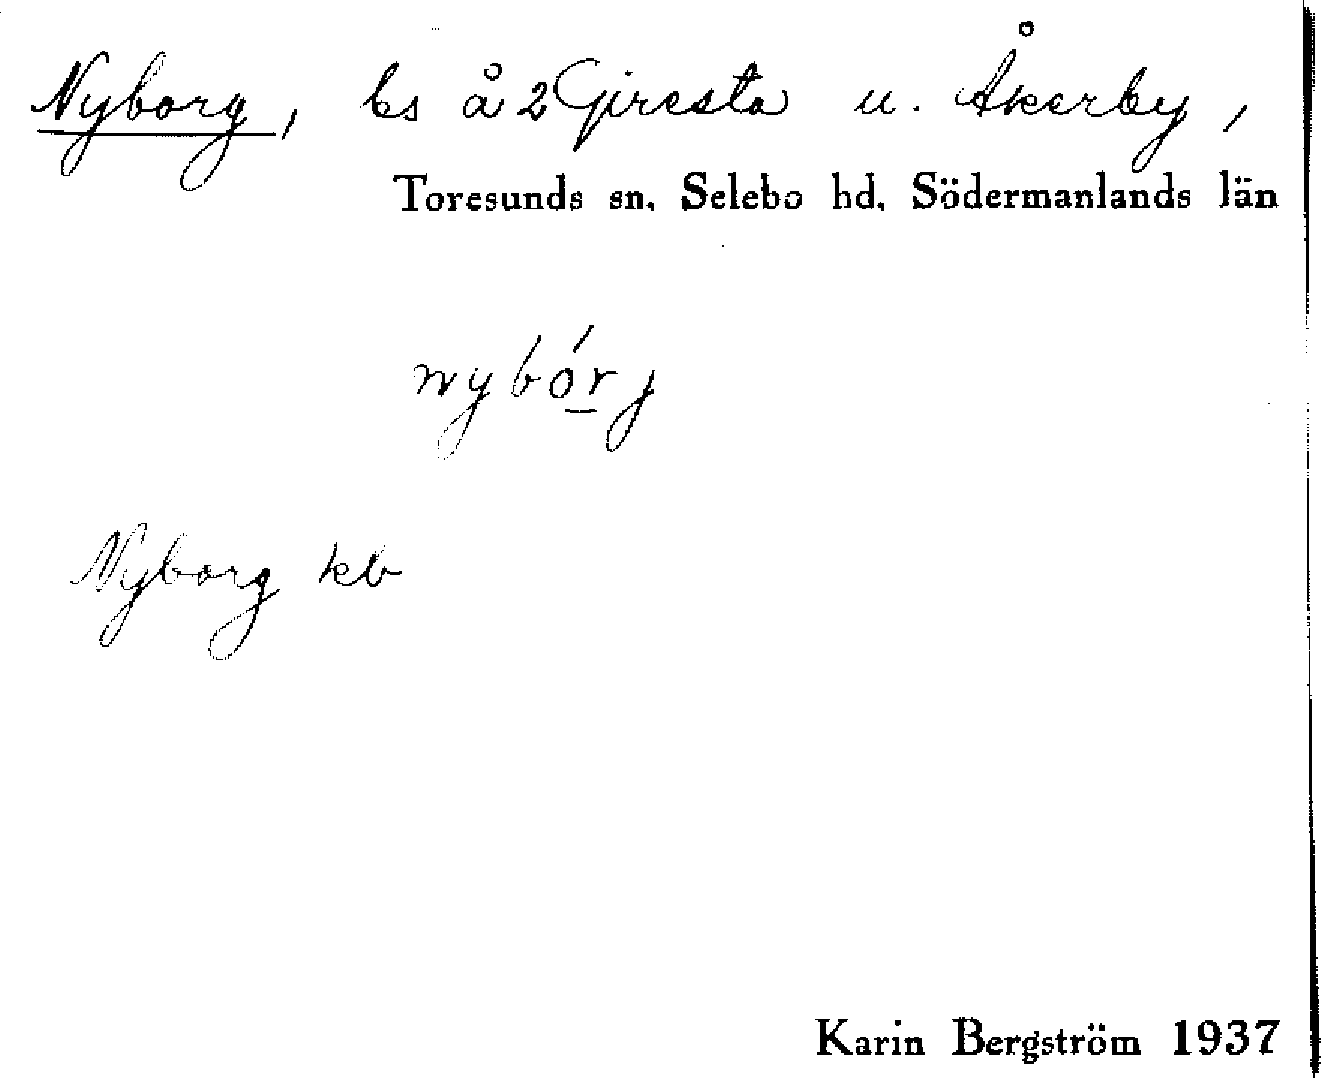 Nyborg, bs å 2 Giresta u. Åkerby,
Toresunds sn. Selebo hd. Södermanlands län
nybórj
Nyborg kb
Karin Bergström 1937